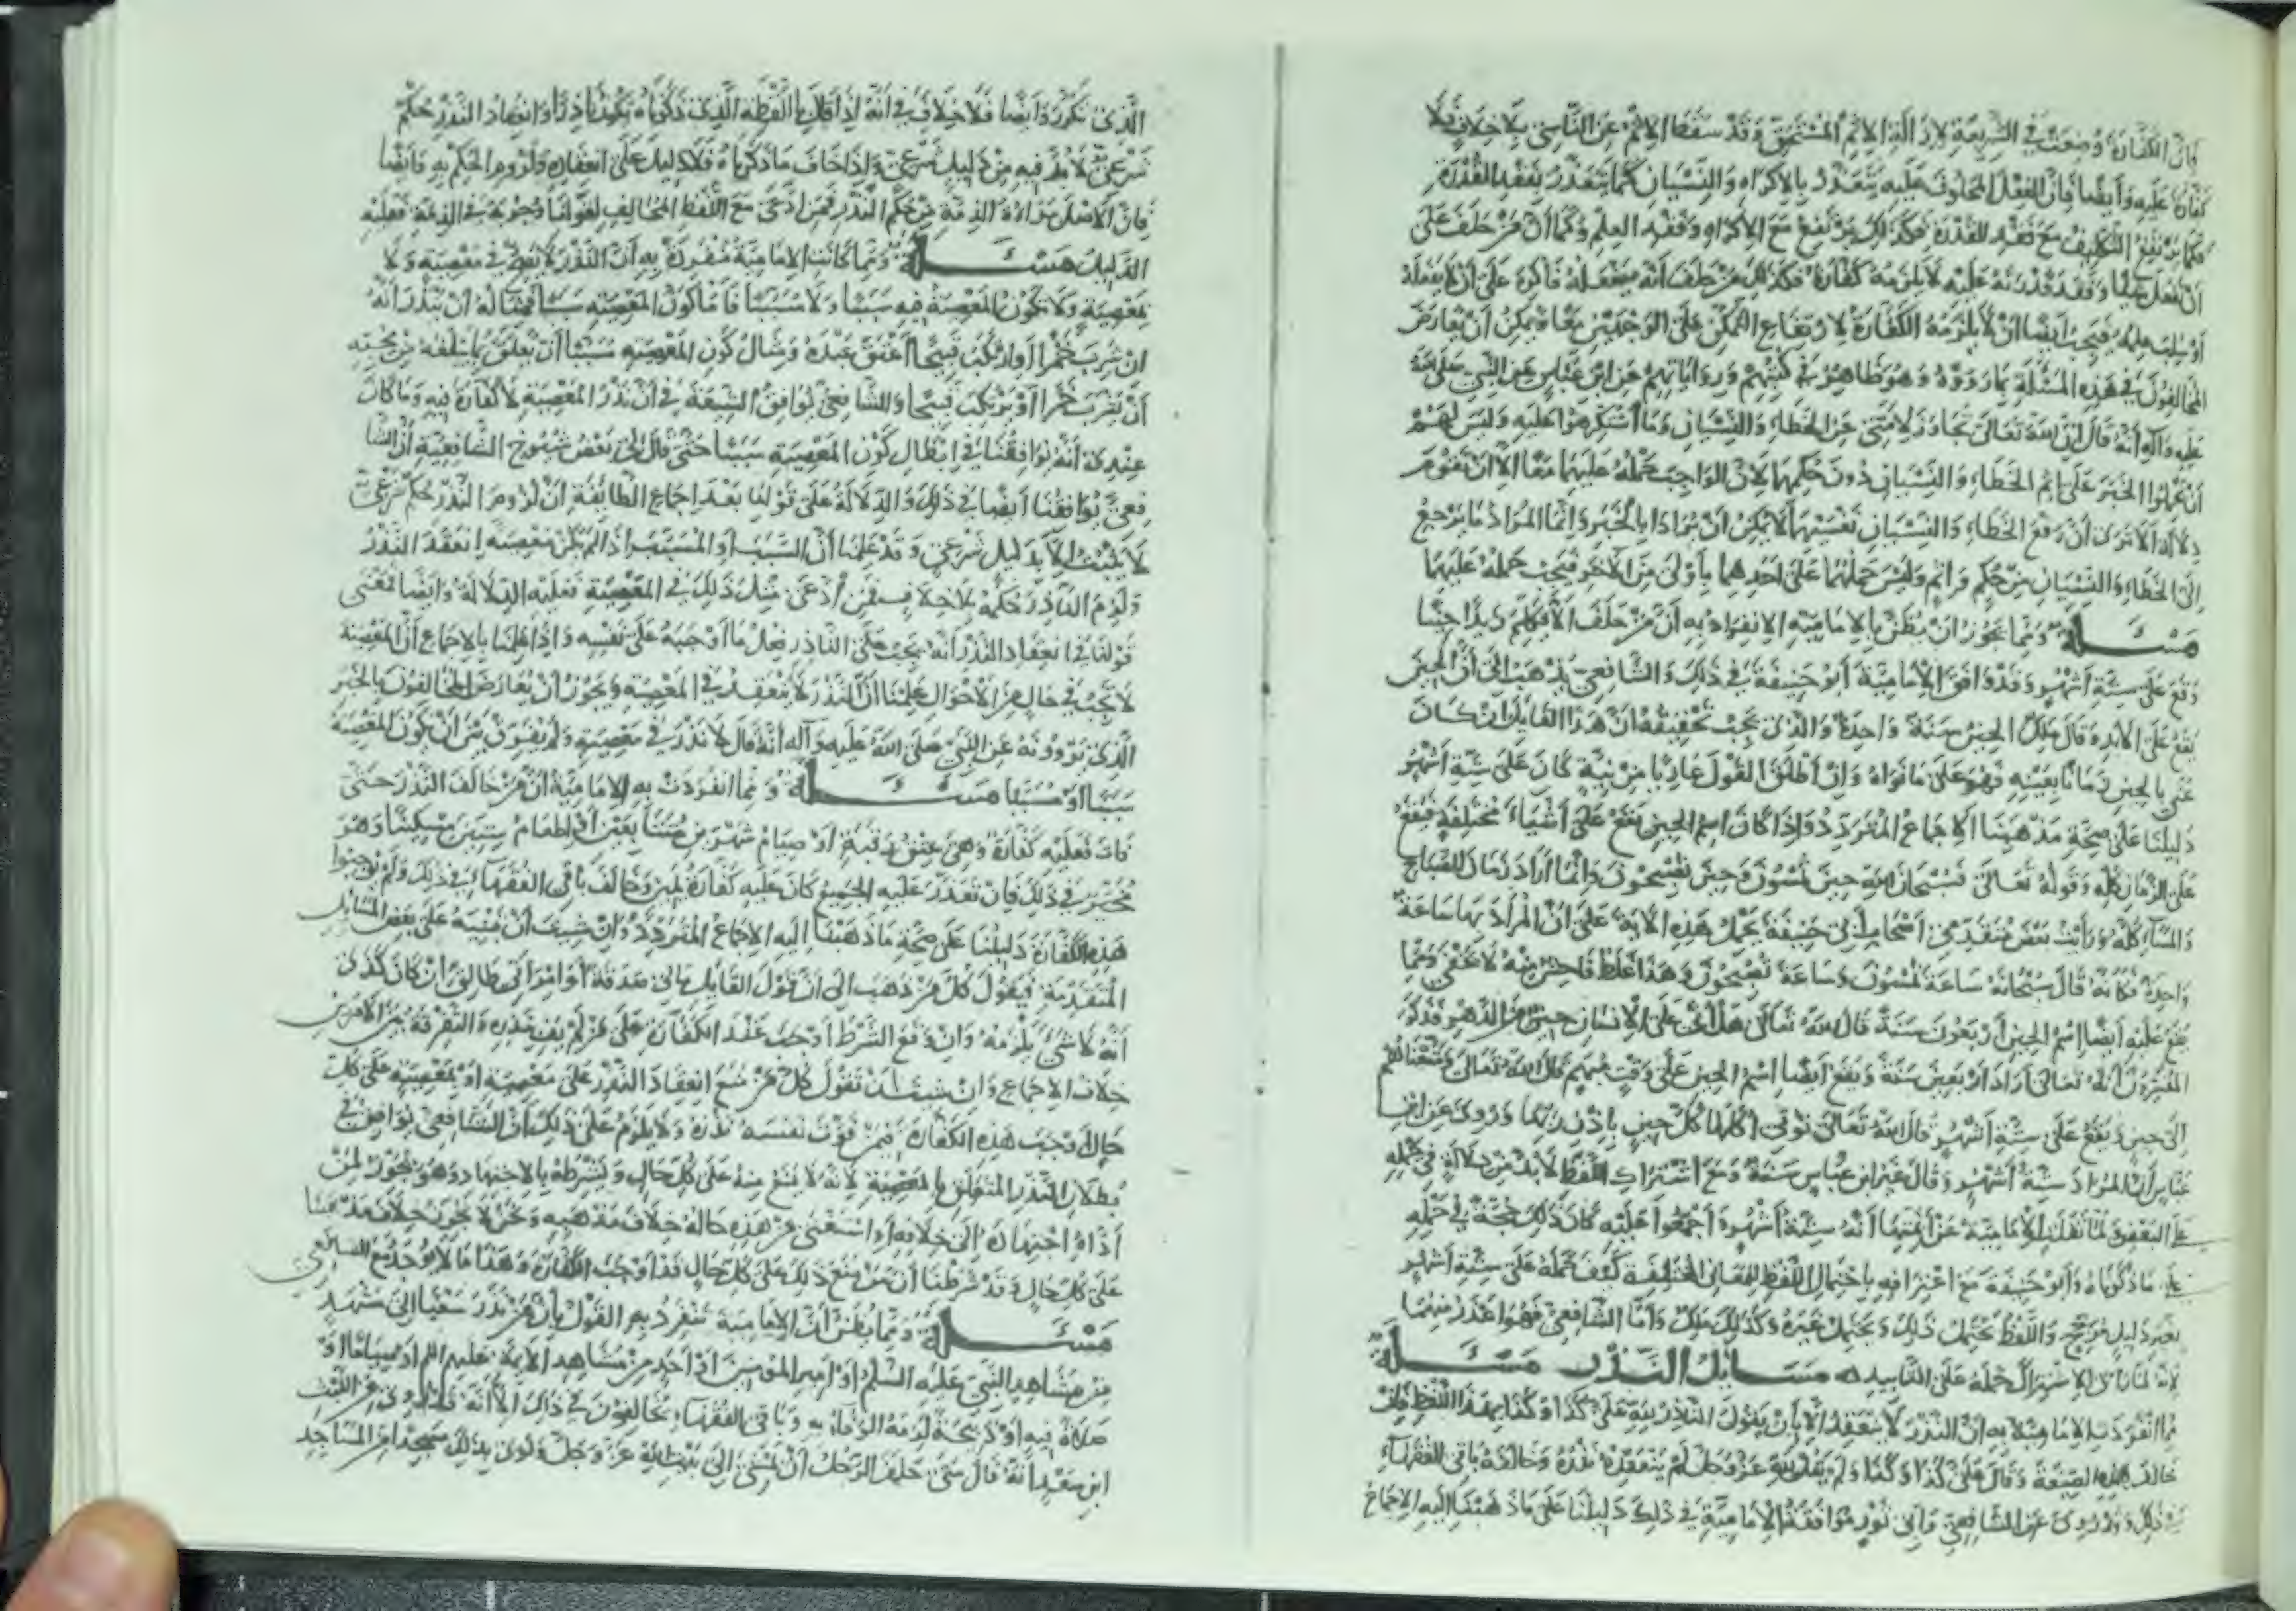 فان الكفارة وضعت في الشريعة لازالة الاثم المستحق وقد سقط الاثم عن الناسي بلا خلاف فلا
كفارة عليه وأيضا فان الفعل المحلوف عليه يتعذر بالاكراه والنسيان كما يتعذر بفقد القدرة
فكما يرتفع التكليف مع فقد القدرة فكذلك يرتفع مع الاكراه وفقد العلم وكما ان من حلف على
ان يفعل شيئا وفقد قدرته عليه لا يلزمه كفارة فكذلك من حلف أنه يفعله فاكره على ان لا يفعله
او سلب علمه فيجب ايضا ان لا يلزمه الكفارة لارتفاع التمكن على الوجهين معا ويمكن ان يعارض
المخالفون في هذه المسئلة بما رووه وهو ظاهر في كتبهم ورواياتهم عن ابن عباس عن النبي صلى الله
عليه وآله أنه قال ان الله تعالى تجاوز لامتي عن الخطاء والنسيان وما استكرهوا عليه وليس لهم
أن يحملوا الخبر على اثم الخطاء والنسيان دون حكمها لان الواجب حمله عليهما معا الا ان تقوم
دلالة الا ترى ان رفع الخطاء والنسيان نفسيهما لا يمكن ان يرادا بالخبر وانما المراد ما يرجع
الى الخطاء والنسيان من حكم واثم وليس حملهما على احدهما باولى من الآخر فيجب حمله عليهما
مسئلة ومما يجوز ان يظن بالامامية الانفراد به أن من حلف الا يكلم زيدا حينا
وقع على ستة أشهر وقد وافق الامامية أبو حنيفة في ذلك والشافعي يذهب الى أن الحين
يقع على الابد وقال ملك الحين سنة واحدة والذي يجب تحقيقه ان هذا القايل ان كان
عنى بالحين زمانا بعينه فهو على ما نواه وان أطلق القول عاريا من نية كان على ستة أشهر
دليلنا على صحة مذهبنا الاجماع المتردد واذا كان اسم الحين يقع على أشياء مختلفة فيقع
على الزمان كله وقوله تعالى فسبحان الله حين تمسون وحين تصبحون وانما أراد زمان الصباح
والمساء كله ورأيت بعض متقدمي أصحاب ابي حنيفة يحمل هذه الاية على ان المراد بها ساعة
واحدة فكانه قال سبحانه ساعة تمسون وساعة تصبحون وهذا غلط فاحش منه لا يخفى ومما
يقع عليه ايضا اسم الحين أربعون سنة قال الله تعالى هل أتى على الانسان حين من الدهر فذكر
المفسرون أنه تعالى أراد اربعين سنة ويقع ايضا اسم الحين على وقت مبهم قال الله تعالى ومتعناهم
الى حين ويقع على ستة أشهر قال الله تعالى تؤتي أكلها كل حين باذن ربها وروى عن ابن
عباس أن المراد ستة أشهر وقال غير ابن عباس سنة ومع اشتراك اللفظ لا بد من دلالة في حمله
على البعض ولما نقل الامامية عن أئمتها أنه ستة أشهر وأجمعوا عليه كان ذلك حجة في حمله
على ما ذكرناه وأبو حنيفة مع اعترافه باحتمال اللفظ للمعاني المختلفة كيف حمله على ستة أشهر
بغير دليل مرجح واللفظ يحتمل ذلك ويحتمل غيره وكذلك ملك وأما الشافعي فهو اعذر منهما
لانه على التأبيد مسائل النذر مسئلة
مما انفردت الامامية به ان النذر لا ينعقد الا بأن يقول الناذر لله علي كذا وكذا بهذا اللفظ فان
خالف هذه الصيغة وقال علي كذا وكذا ولم يقل لله عز وجل لم ينعقد نذره وخالف باقي الفقهاء
في ذلك وروى عن الشافعي وأبي ثور موافقة الامامية في ذلك دليلنا على ما ذهبنا اليه الاجماع
الذي تكرر وأيضا فلا خلاف في أنه اذا قال باللفظ الذي ذكرناه يكون ناذرا وانعقاد النذر حكم
شرعي لا بد فيه من دليل شرعي واذا خالف ما ذكرناه فلا دليل على انعقاده ولزوم الحكم به وأيضا
فان الاصل براءة الذمة من حكم النذر فمن ادعى مع اللفظ المخالف لقولنا وجوبه في الذمة فعليه
الدليل مسئلة ومما كانت الامامية منفردة به أن النذر لا يصح في معصية ولا
بمعصية ولا تكون المعصية فيه سببا ولا مسببا فأما كون المعصية سببا فمثاله ان ينذر أنه
ان شرب خمرا أو ارتكب قبيحا أعتق عبده ومثال كون المعصية مسببا أن يعلق بما يبلغه من محبته
أن يشرب خمرا أو يرتكب قبيحا والشافعي يوافق الشيعة في أن نذر المعصية لا كفارة فيه وما كان
عندي أنه يوافقنا في ابطال كون المعصية سببا حتى قال لي بعض شيوخ الشافعية أن الشا
فعي يوافقنا أيضا في ذلك والدلالة على قولنا بعد اجماع الطائفة ان لزوم النذر حكم شرعي
لا يثبت الا بدليل شرعي وقد علمنا أن السبب او المسبب اذا لم يكن معصية انعقد النذر
ولزم الناذر حكمه بلا خلاف فمن ادعى مثل ذلك في المعصية فعليه الدلالة وأيضا فمعنى
قولنا في انعقاد النذر أنه يجب على الناذر فعل ما أوجبه على نفسه واذا علمنا بالاجماع أن المعصية
لا تجب في حال من الاحوال علمنا أن النذر لا ينعقد في المعصية ويجوز أن يعارض المخالفون بالخبر
الذي يروونه عن النبي صلى الله عليه وآله أنه قال لا نذر في معصية ولم يفرق بين أن تكون المعصية
سببا أو مسببا مسئلة ومما انفردت به الامامية ان من خالف النذر حتى
فات فعليه كفارة وهي عتق رقبة أو صيام شهرين متتابعين أو اطعام ستين مسكينا وهو
مخير في ذلك فان تعذر عليه الجميع كان عليه كفارة يمين وخالف باقي الفقهاء في ذلك ولم يوجبوا
هذه الكفارة دليلنا على صحة ما ذهبنا اليه الاجماع المتردد وان شئت أن تبنيه على بعض المسائل
المتقدمة فيقول كل من ذهب الى أن قول القايل مالي صدقة أو امرأتي طالق ان كان كذى
أنه لا شيء يلزمه وان وقع الشرط أوجب عقد الكفارة على من لم يف بنذره والتفرقة بين الامرين
خلاف الاجماع وان شئت أن تقول كل من منع انعقاد النذر على معصية أو بمعصية على كل
حال أوجب هذه الكفارة فيمن فوت نفسه نذره ولا يلزم على ذلك أن الشافعي يوافق في
بطلان النذر المتعلق بالمعصية لانه لا يمنع منه على كل حال ويشرطه بالاجتهاد وهو يجوز لمن
أداه اجتهاده الى خلافه أو استفتى من هذه حاله خلاف مذهبه ونحن لا نجوز خلاف مذهبنا
على كل حال وقد شرطنا أن من منع ذلك على كل حال فقد أوجب الكفارة وهذا ما لا يوجد مع الشافعي
مسئلة ومما يظن أن الامامية تنفرد به القول بأن من نذر سعيا الى مشهد
من مشاهد النبي عليه السلم أو أمير المؤمنين أو أحد من مشاهد الأئمة عليهم السلم أو صياما أو
صلاة فيه أو ذبيحة لزمه الوفاء به وباقي الفقهاء يخالفون في ذلك الا أنه قد روى عن الليث
ابن سعد أنه قال متى حلف الرجل أن يمشي الى بيت الله عز وجل ونوى بذلك مسجدا من المساجد